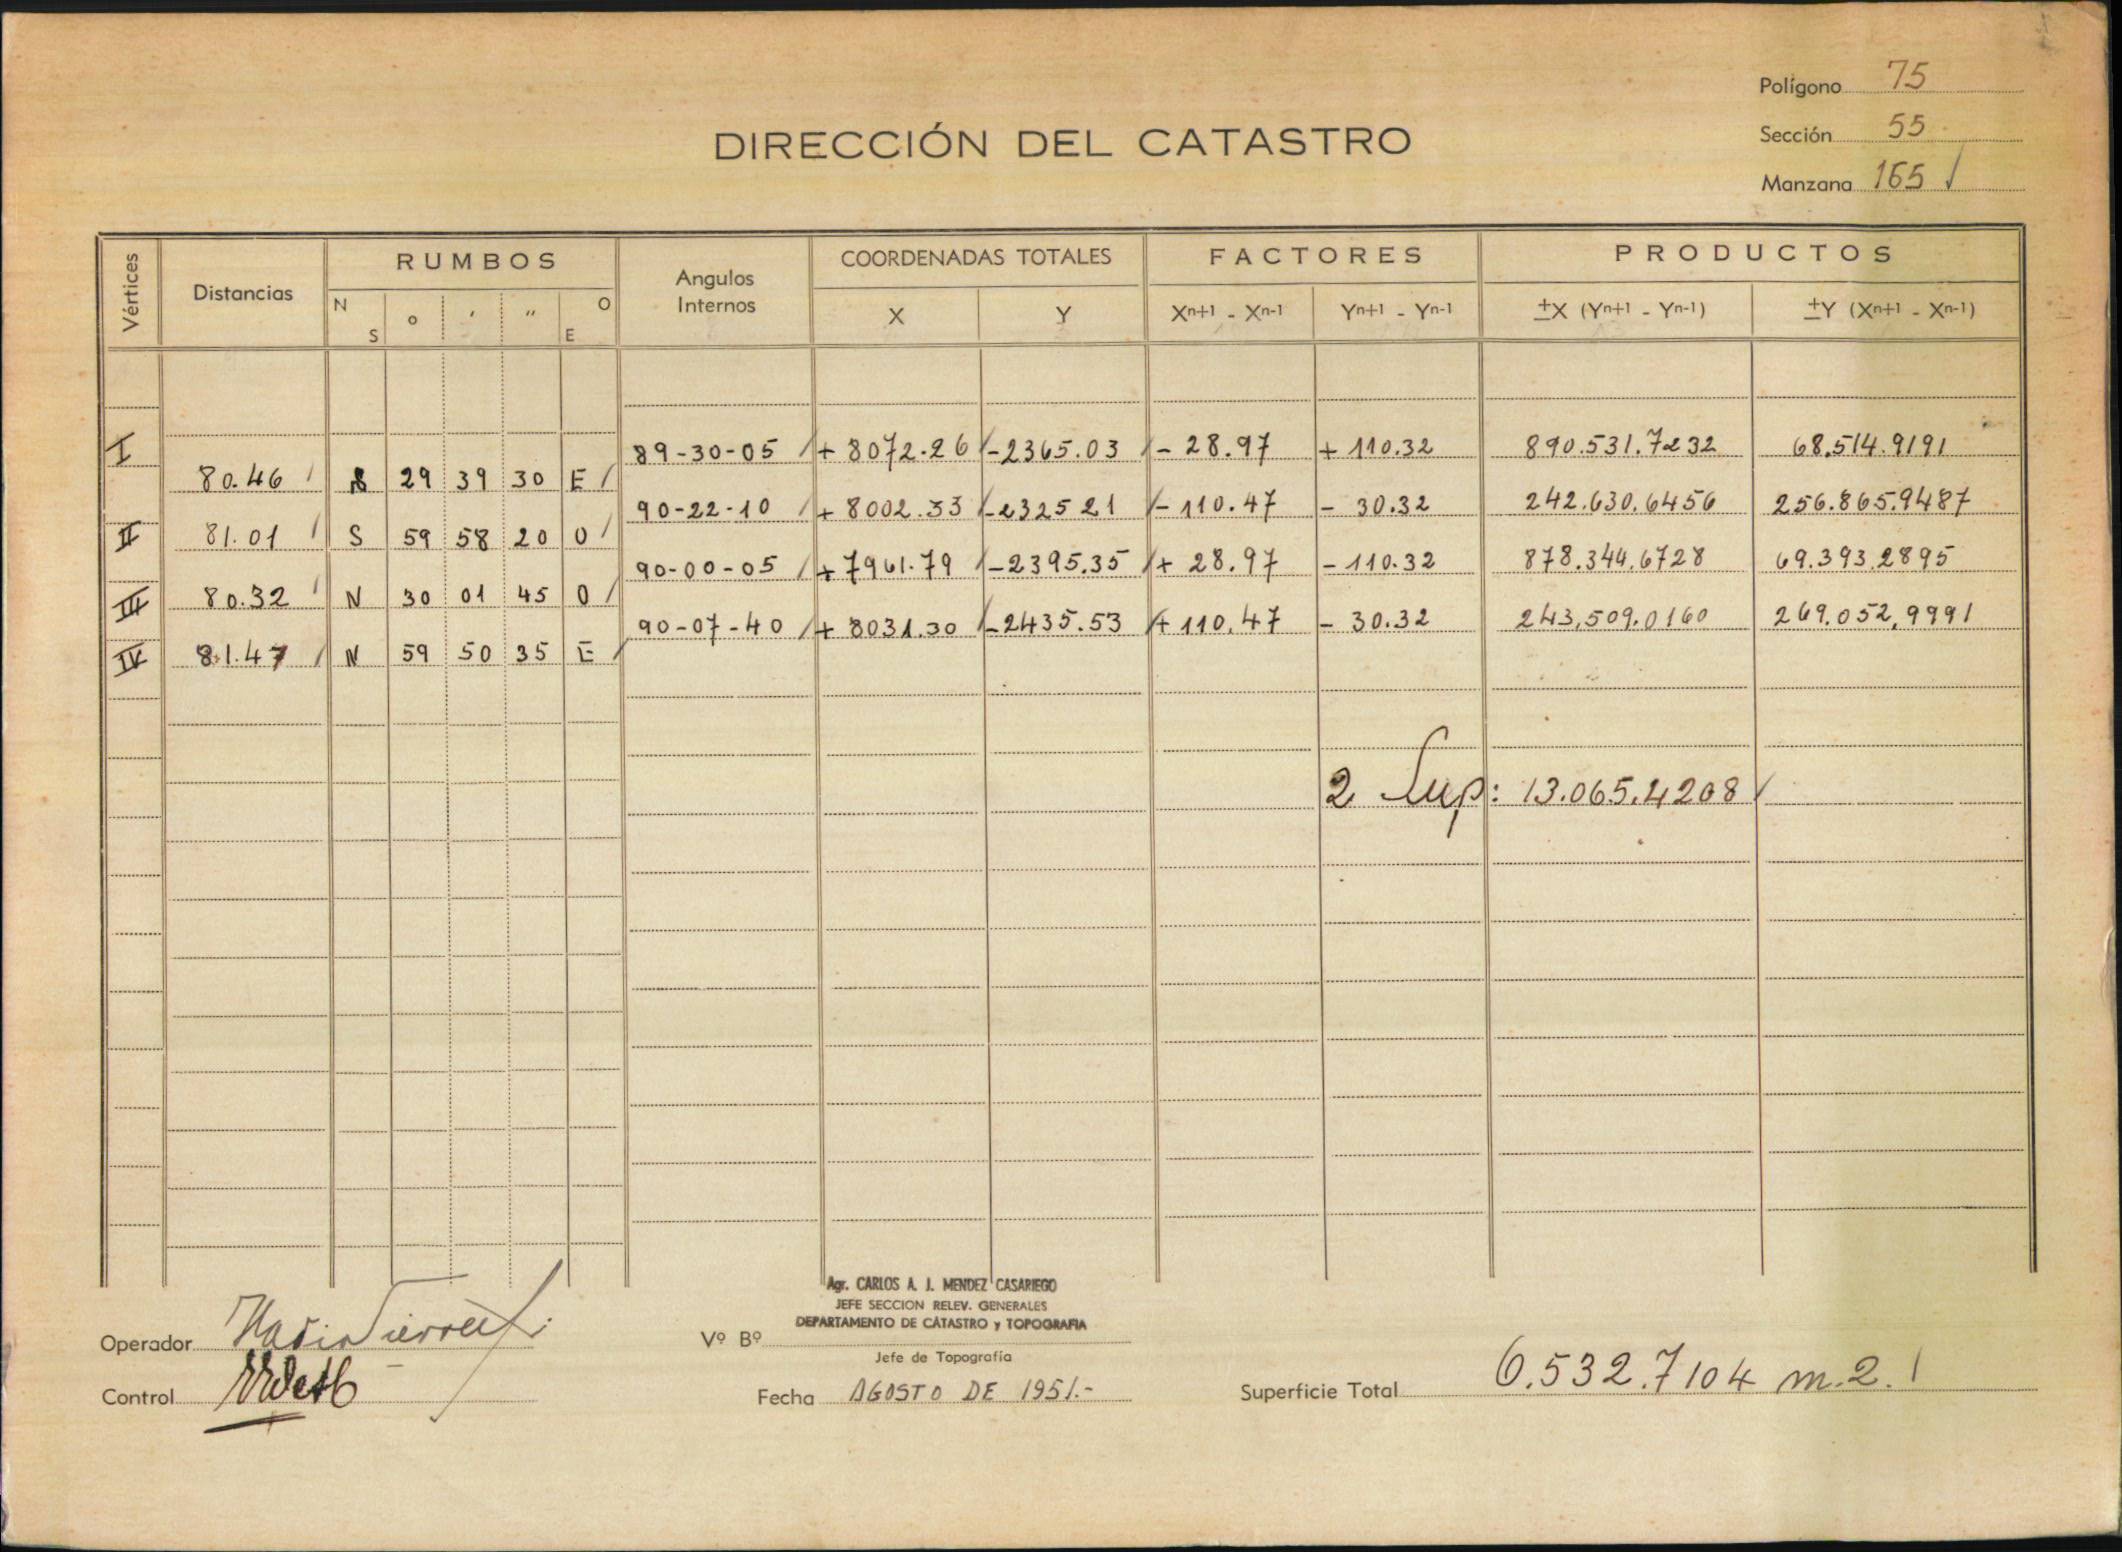 Polígono 75
DIRECCIÓN DEL CATASTRO
Sección 55
Manzana 165 /
Vértices
Distancias
RUMBOS
N S ° ′ ″ O E
Angulos Internos
COORDENADAS TOTALES
X Y
FACTORES
Xn+1 - Xn-1 Yn+1 - Yn-1
PRODUCTOS
±X (Yn+1 - Yn-1) ±Y (Xn+1 - Xn-1)
I 89-30-05 / + 8072.26 / -2365.03 / - 28.97 + 110.32 890.531.7232 68.514.9191
80.46 / S 29 39 30 E /
90-22-10 / + 8002.33 / -2325 21 / - 110.47 - 30.32 242.630.6456 256.865.9487
II 81.01 / S 59 58 20 O /
90-00-05 / + 7961.79 / -2395.35 / + 28.97 - 110.32 878.344.6728 69.393.2895
III 80.32 / N 30 01 45 O /
90-07-40 / + 8031.30 / -2435.53 / + 110.47 - 30.32 243.509.0160 269.052.9991
IV 81.47 / N 59 50 35 E /
2 Sup: 13.065.4208 /
Agr. CARLOS A. J. MENDEZ CASARIEGO
JEFE SECCION RELEV. GENERALES
DEPARTAMENTO DE CATASTRO y TOPOGRAFIA
Operador
Vº Bº
Jefe de Topografía
Control
Fecha AGOSTO DE 1951.-
Superficie Total 6.532.7104 m.2. /